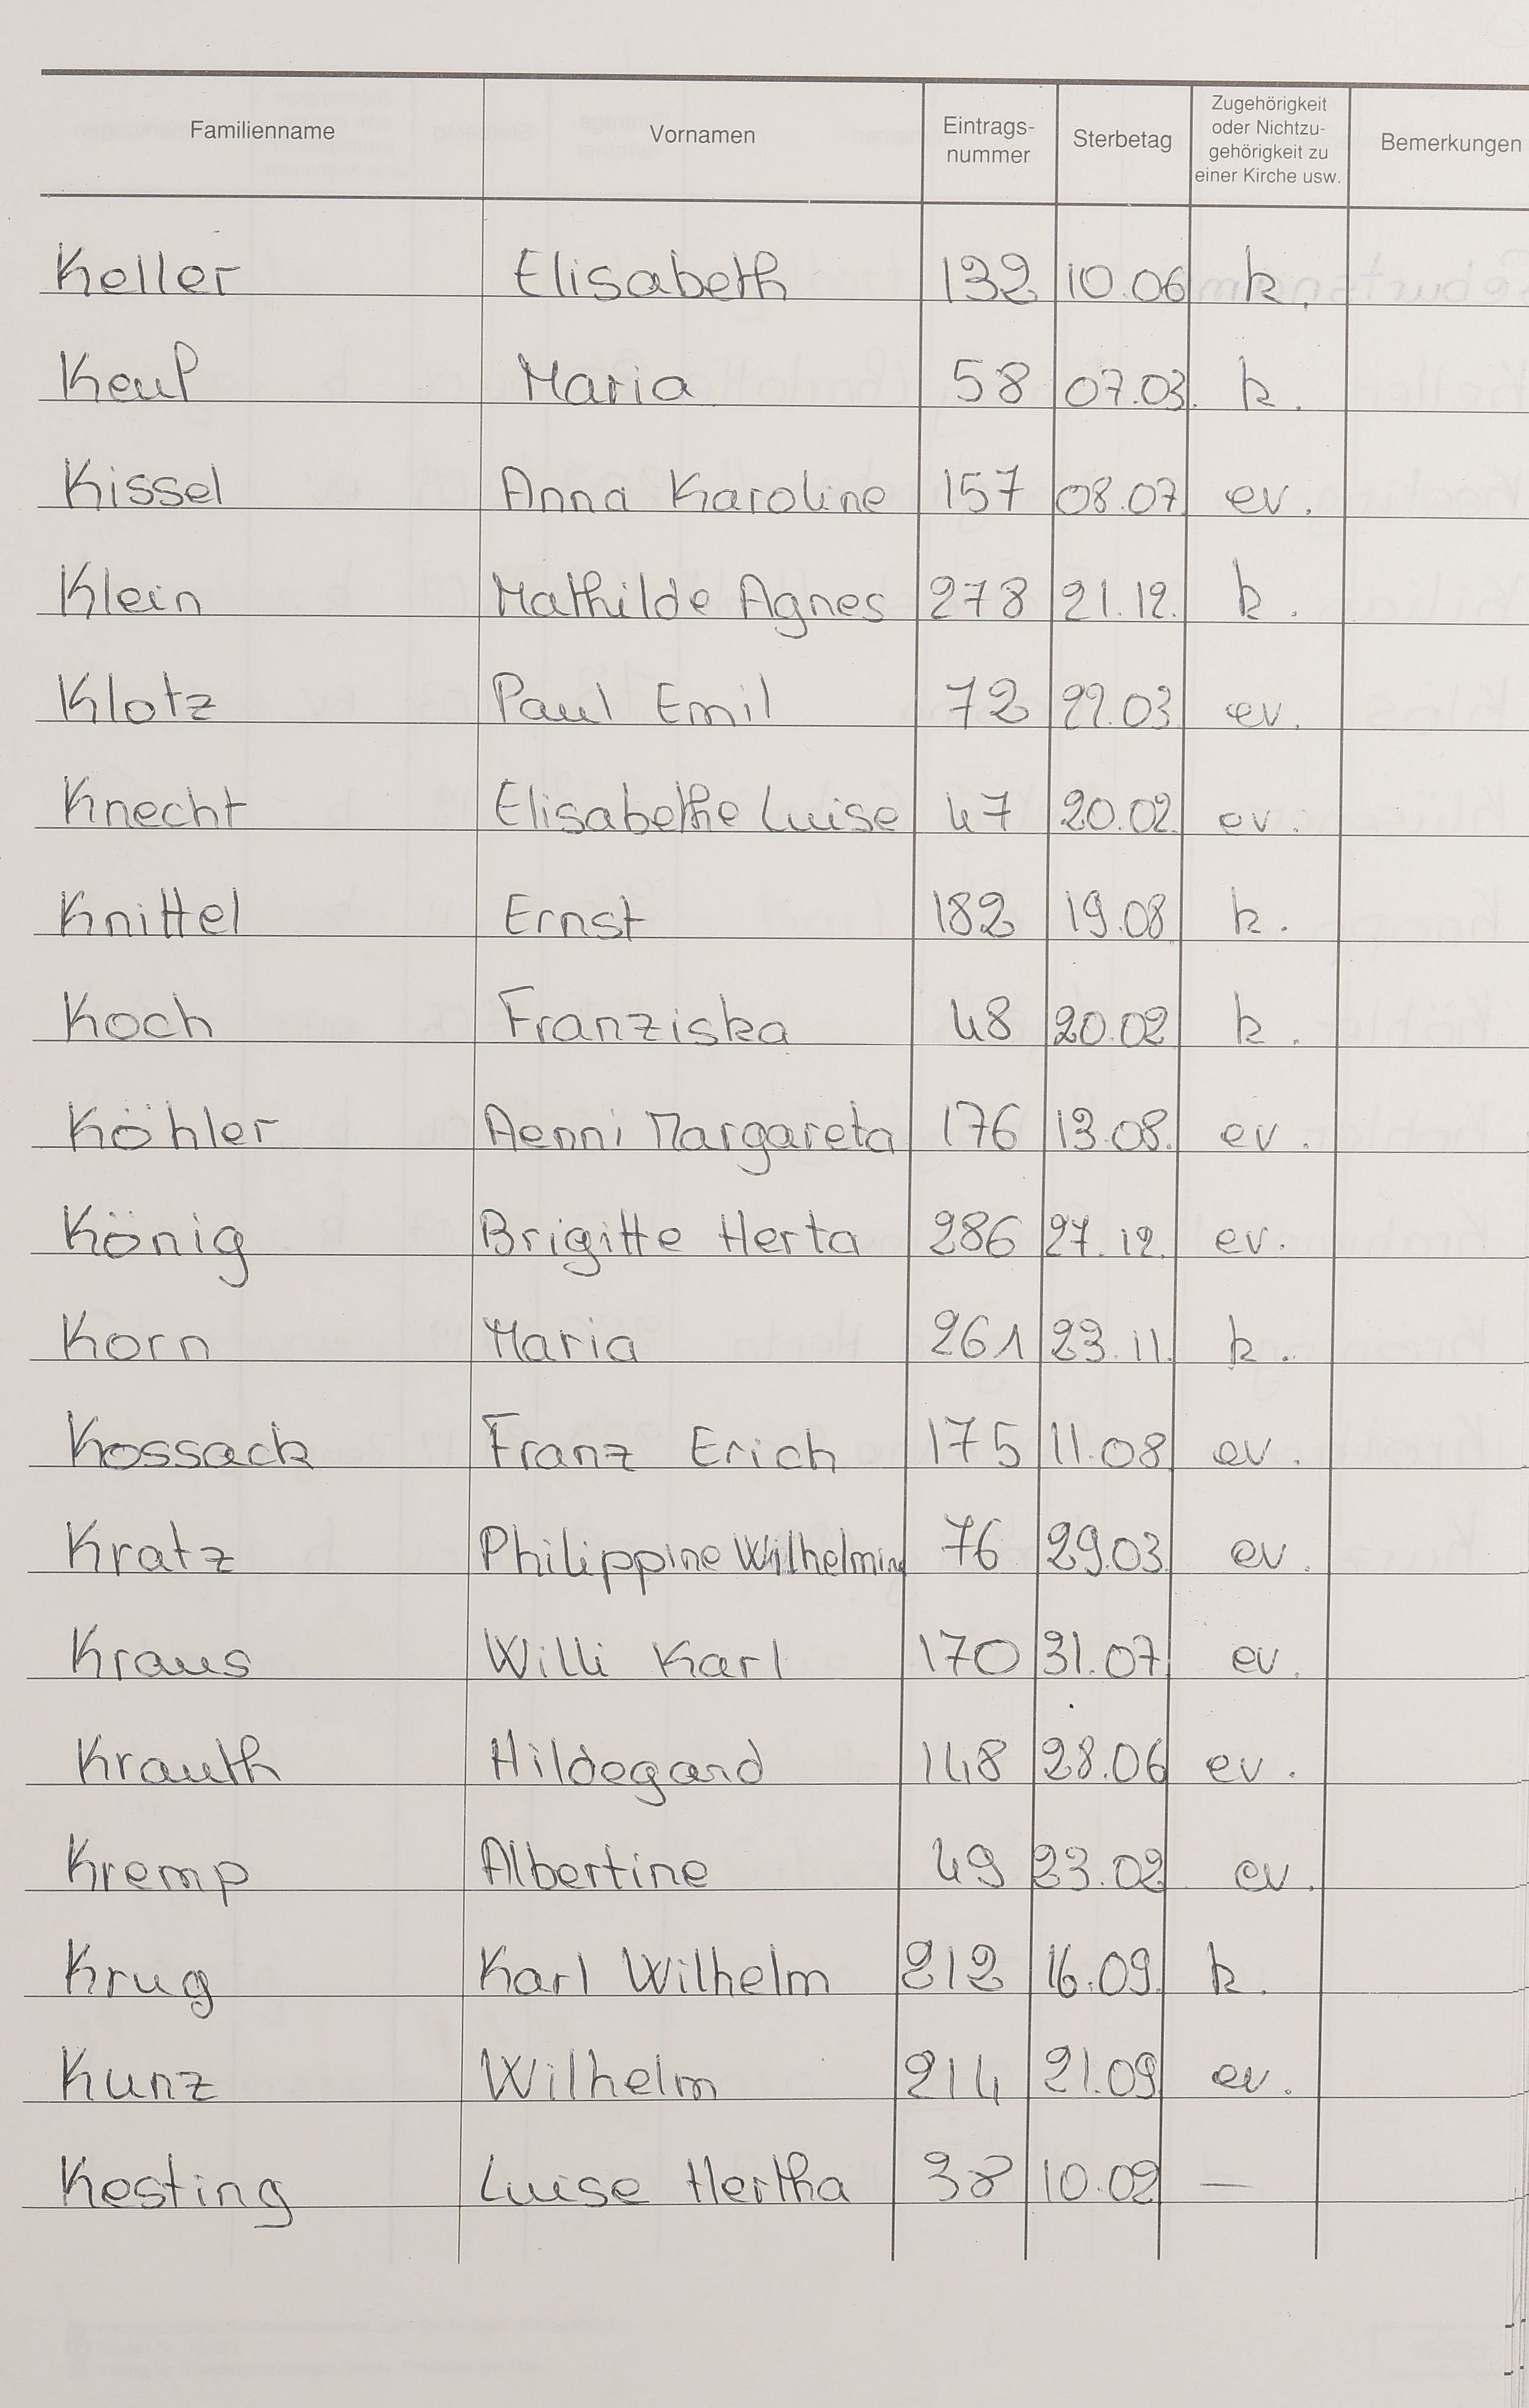 Familienname Vornamen Eintrags-nummer Sterbetag Zugehörigkeit oder Nichtzu-gehörigkeit zu einer Kirche usw. Bemerkungen
Keller Elisabeth 132 10.06 k.
Keup Maria 58 07.03. k.
Kissel Anna Karoline 157 08.07 ev.
Klein Mathilde Agnes 278 21.12. k.
Klotz Paul Emil 72 22.03 ev.
Knecht Elisabethe Luise 47 20.02. ev.
Knittel Ernst 182 19.08 k.
Koch Franziska 48 20.02 k.
Köhler Aenni Margareta 176 13.08. ev.
König Brigitte Herta 286 27.12. ev.
Korn Maria 261 23.11. k.
Kossack Franz Erich 175 11.08 ev.
Kratz Philippine Wilhelmina 76 29.03. ev.
Kraus Willi Karl 170 31.07. ev.
Krauth Hildegard 148 28.06 ev.
Kremp Albertine 49 23.02 ev.
Krug Karl Wilhelm 212 16.09. k.
Kunz Wilhelm 214 21.09 ev.
Kesting Luise Hertha 38 10.02 —